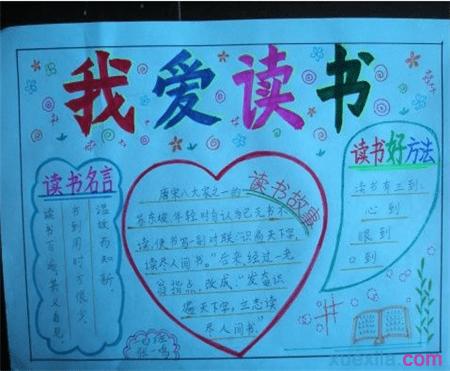 我爱读书
读书名言
温故而知新,
书到用时方恨少,
读书百遍其义自见。
读书故事
唐宋八大家之一的
苏东坡年轻时自认为已无书不
读,便书写一副对联:"识遍天下字,
读尽人间书。"后来经过一老
翁指点,改成:"发奋识
遍天下字,立志读
尽人间书"
读书好方法
读书有三到:
心到
眼到
口到
xuexila.com